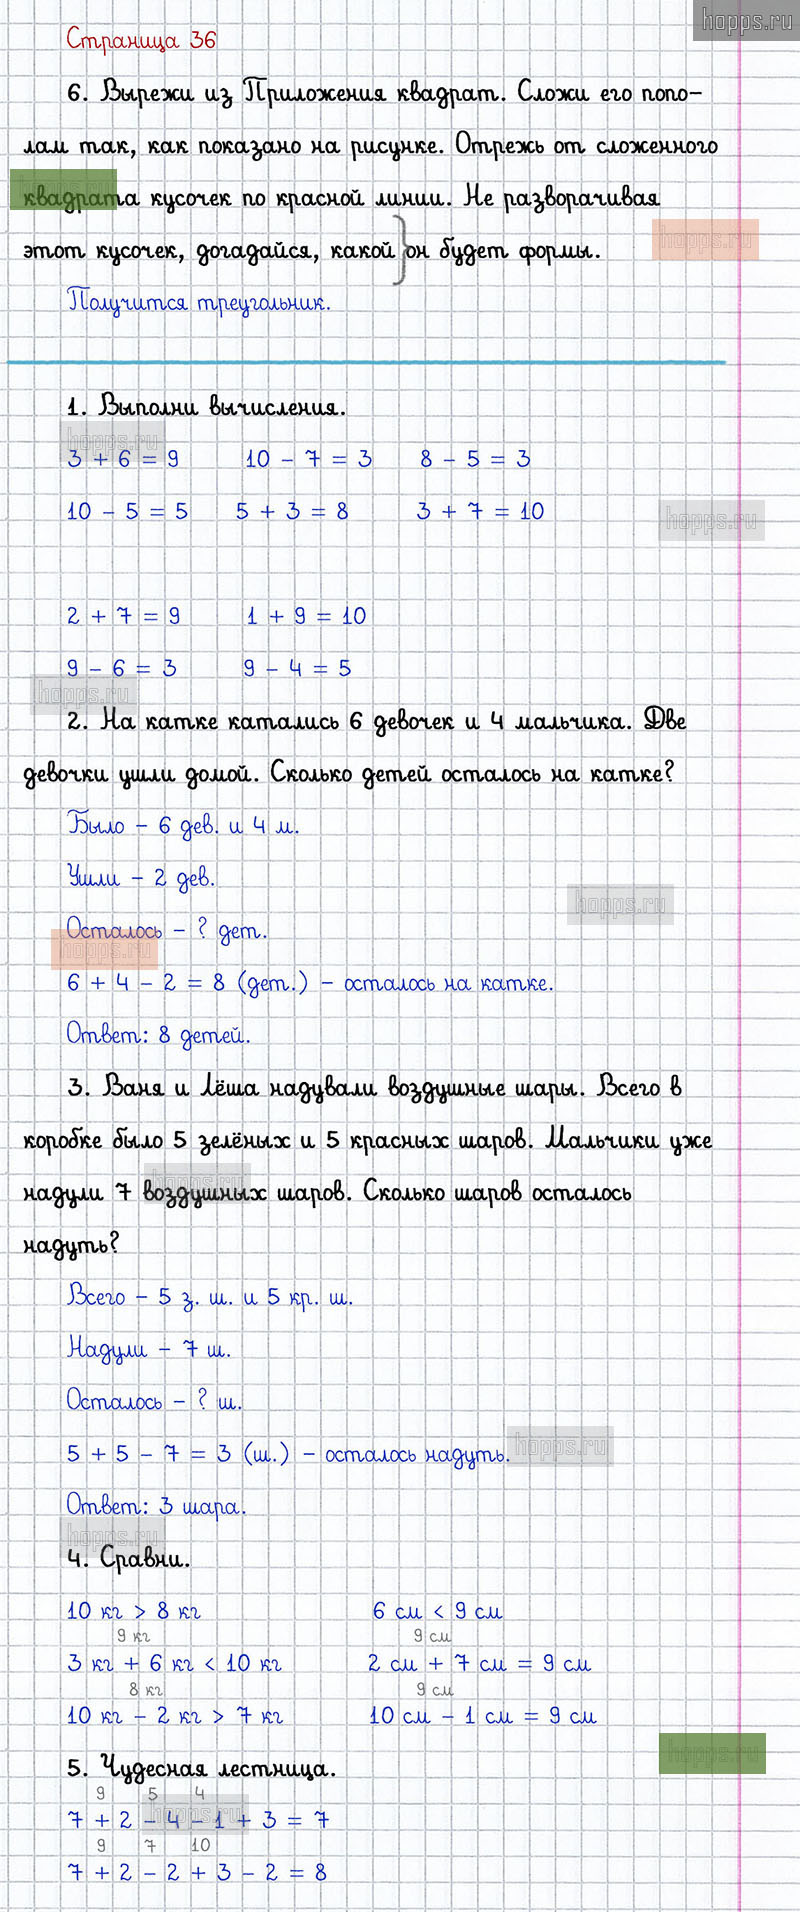 hopps.ru
Страница 36
6. Вырежи из Приложения квадрат. Сложи его попо-
лам так, как показано на рисунке. Отрежь от сложенного
квадрата кусочек по красной линии. Не разворачивая
hopps.ru
этот кусочек, догадайся, какой он будет формы.
Получится треугольник.
1. Выполни вычисления.
hopps.ru
3 + 6 = 9 10 - 7 = 3 8 - 5 = 3
10 - 5 = 5 5 + 3 = 8 3 + 7 = 10
hopps.ru
2 + 7 = 9 1 + 9 = 10
9 - 6 = 3 9 - 4 = 5
hopps.ru
2. На катке катались 6 девочек и 4 мальчика. Две
девочки ушли домой. Сколько детей осталось на катке?
Было - 6 дев. и 4 м.
Ушли - 2 дев.
hopps.ru
Осталось - ? дет.
hopps.ru
6 + 4 - 2 = 8 (дет.) - осталось на катке.
Ответ: 8 детей.
3. Ваня и Лёша надували воздушные шары. Всего в
коробке было 5 зелёных и 5 красных шаров. Мальчики уже
hopps.ru
надули 7 воздушных шаров. Сколько шаров осталось
надуть?
Всего - 5 з. ш. и 5 кр. ш.
Надули - 7 ш.
Осталось - ? ш.
5 + 5 - 7 = 3 (ш.) - осталось надуть.
hopps.ru
Ответ: 3 шара.
hopps.ru
4. Сравни.
10 кг > 8 кг 6 см < 9 см
9 кг 9 см
3 кг + 6 кг < 10 кг 2 см + 7 см = 9 см
8 кг 9 см
10 кг - 2 кг > 7 кг 10 см - 1 см = 9 см
hopps.ru
5. Чудесная лестница.
9 5 4
7 + 2 - 4 - 1 + 3 = 7
hopps.ru
9 7 10
7 + 2 - 2 + 3 - 2 = 8